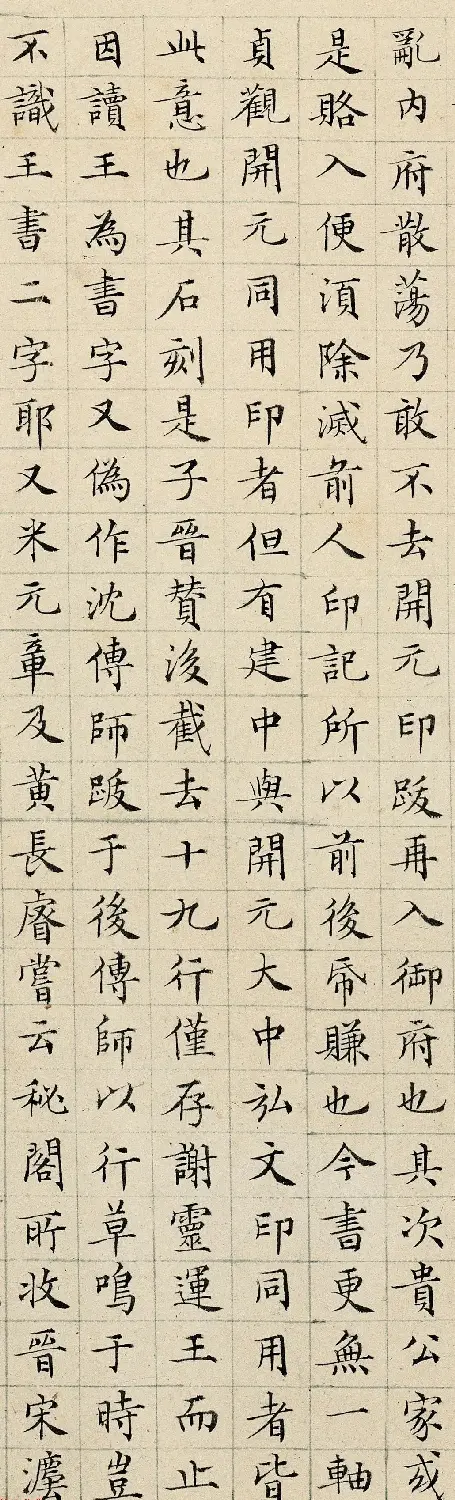 亂內府散蕩乃敢不去開元印跋再入御府也其次貴公家或
是賂入便須除滅前人印記所以前後帋賺也今書更無一軸
貞觀開元同用印者但有建中與開元大中弘文印同用者皆
此意也其石刻是子晉賛後截去十九行僅存謝靈運王而止
因讀王為書字又偽作沈傳師跋于後傳師以行草鳴于時豈
不識王書二字耶又米元章及黃長睿嘗云秘閣所收晉宋灋